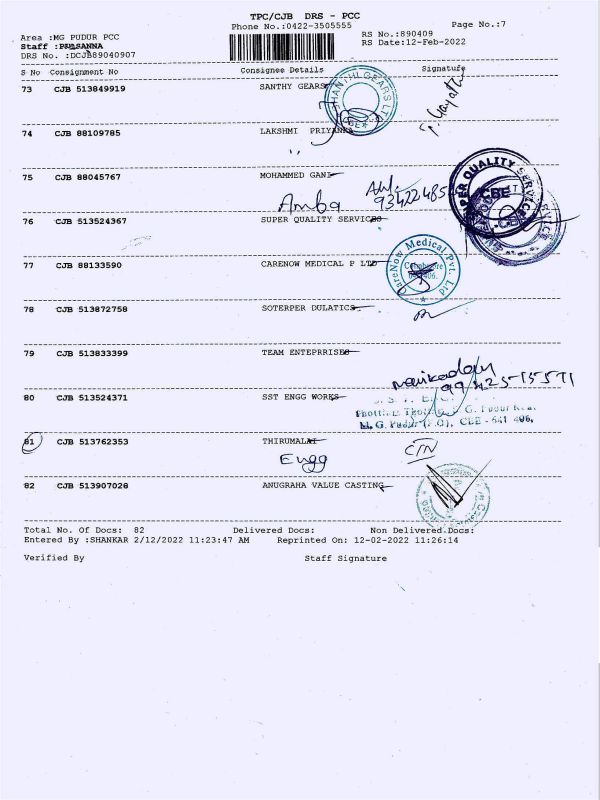 TPC/CJB DRS - PCC
Phone No.:0422-3505555
Page No.:7
Area :MG PUDUR PCC
Staff :PRASANNA
DRS No. :DCJB89040907
RS No.:890409
RS Date:12-Feb-2022
S No Consignment No Consignee Details Signature
73 CJB 513849919 SANTHY GEARS
74 CJB 88109785 LAKSHMI PRIYANKA
75 CJB 88045767 MOHAMMED GANI
Amba
76 CJB 513524367 SUPER QUALITY SERVICES
SUPER QUALITY SERVICE
CBE
77 CJB 88133590 CARENOW MEDICAL P LTD
CareNow Medical Pvt. Ltd
78 CJB 513872758 SOTERPER DULATICS
79 CJB 513833399 TEAM ENTEPRRISES
manikadan
99425-15571
80 CJB 513524371 SST ENGG WORKS
81 CJB 513762353 THIRUMALAI
Engg
CTN
82 CJB 513907028 ANUGRAHA VALUE CASTING
Total No. Of Docs: 82 Delivered Docs: Non Delivered Docs:
Entered By :SHANKAR 2/12/2022 11:23:47 AM Reprinted On: 12-02-2022 11:26:14
Verified By Staff Signature